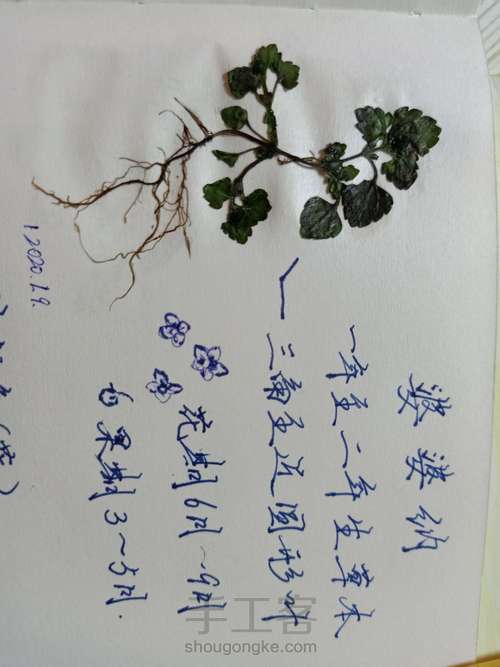 婆婆纳
一年至二年生草本
三角至近圆形叶
花期6月~9月
果期3~5月.
2020.1.9.
手工客
shougongke.com